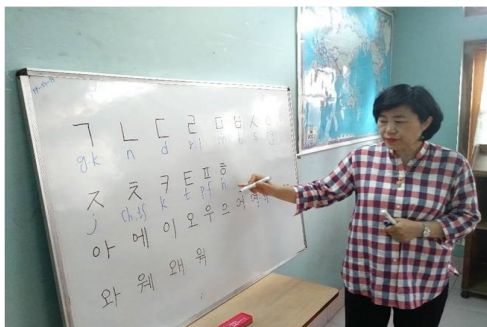 ㄱ ㄴ ㄷ ㄹ ㅁ ㅂ ㅅ ㅇ
g.k n d r.l m b s
ㅈ ㅊ ㅋ ㅌ ㅍ ㅎ
j ch.ts k t p.f h
아 에 이 오 우 으 여
와 웨 왜 워